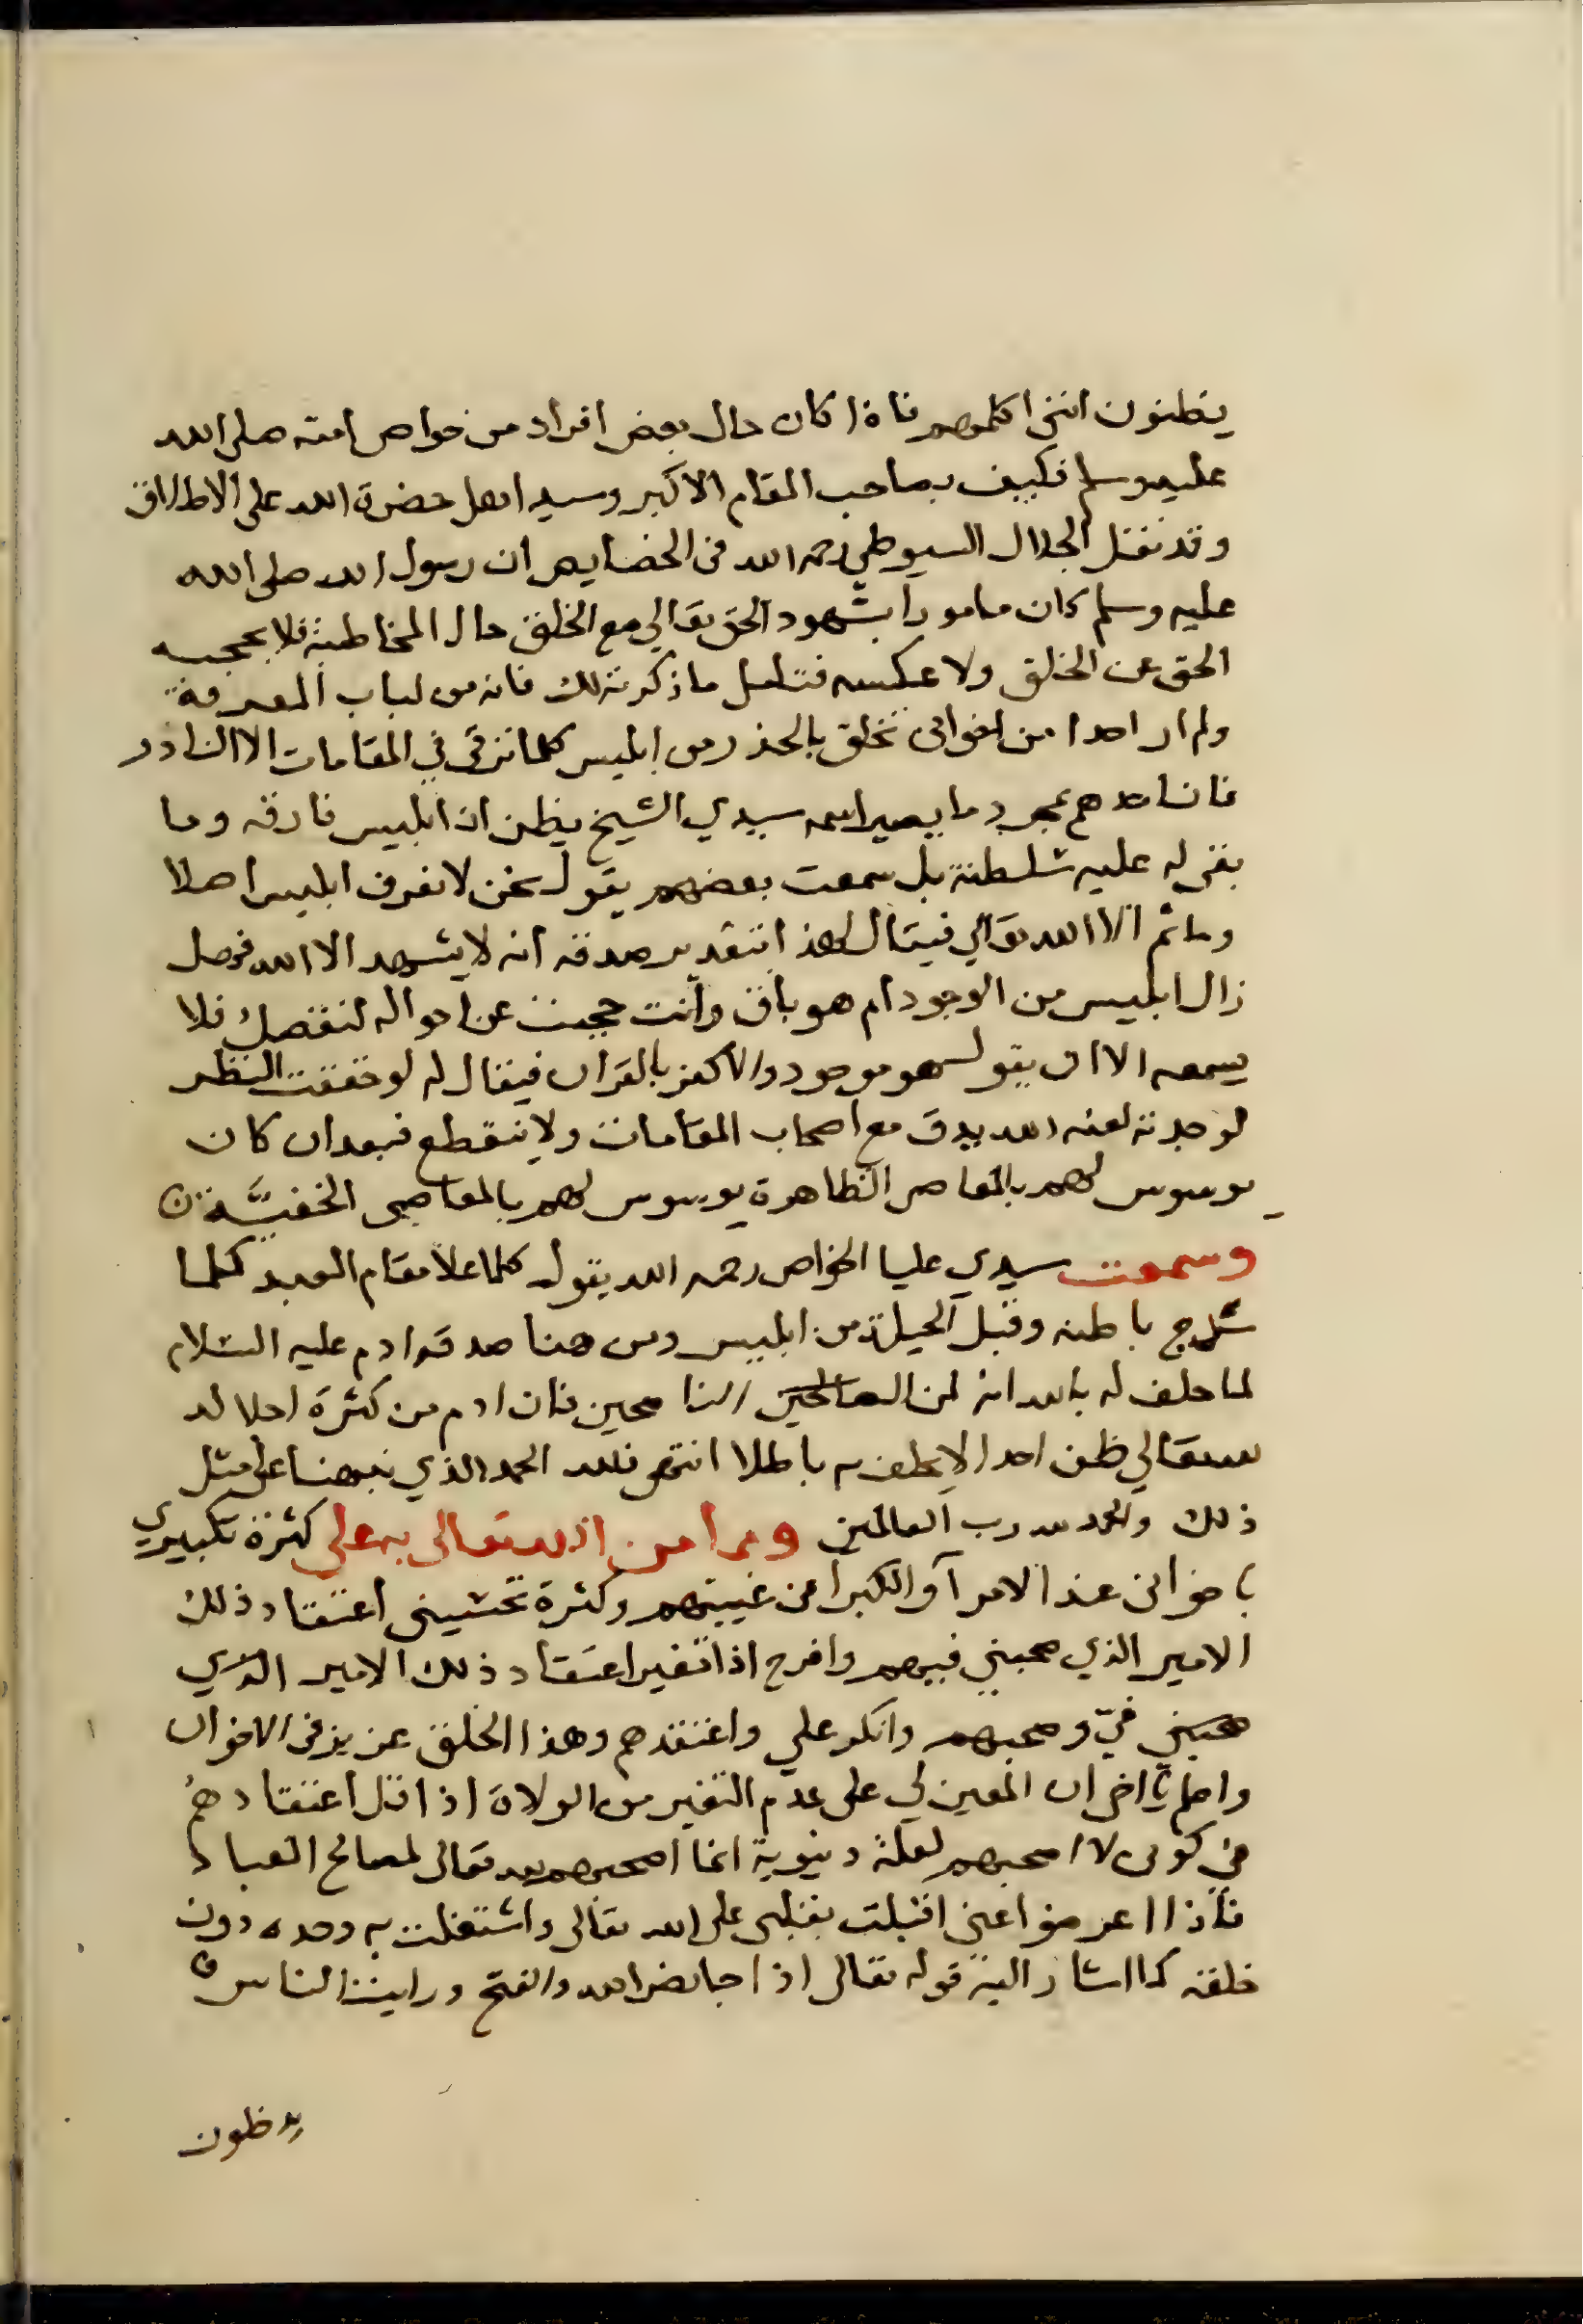 يظنون انني اكلمهم فاذا كان حال بعض افراد من خواص امته صلى الله
عليه وسلم فكيف بصاحب المقام الاكبر وسيد اهل حضرة الله على الاطلاق
وقد نقل الجلال السيوطي رحمه الله في الخصايص ان رسول الله صلى الله
عليه وسلم كان مامورا بشهود الحق تعالي مع الخلق حال المخاطبة فلا يحجبه
الحق عن الخلق ولا عكسه فتامل ما ذكرته لك فانه من لباب المعرفة
ولم ار احدا من اخواني تخلق بالحذر من ابليس كلما ترقي في المقامات الا النادر
فان احدهم بمجرد ما يصير اسمه سيدي الشيخ يظن ان ابليس فارقه وما
بقي له عليه سلطنة بل سمعت بعضهم يقول نحن لا نعرف ابليس اصلا
وما ثم الا الله تعالي فيقال لهذا بتقدير صدقه انه لا يشهد الا الله فهل
زال ابليس من الوجود ام هو باق وانت حجبت عن احواله لنقصك فلا
يسعه الا ان يقول هو موجود والا كفر بالقران فيقال له لو حققت النظر
لوجدته لعنه الله يدق مع اصحاب المقامات ولا ينقطع فبعد ان كان
يوسوس لهم بالمعاصي الظاهرة يوسوس لهم بالمعاصي الخفية
وسمعت سيدي عليا الخواص رحمه الله يقول كلما علا مقام العبد كلما
سدج باطنه وقبل الحيلة من ابليس ومن هنا صدق ادم عليه السلام
لما حلف له بالله انه لمن الصالحين الناصحين فان ادم من كثرة اجلاله
لله تعالي ظن احدا لا يحلف به باطلا انتهى فلله الحمد الذي نبهنا على مثل
ذلك والحمد لله رب العالمين ومما من الله تعالى به علي كثرة تكبيري
باخواني عند الامرآ والكبرا في غيبتهم وكثرة تحسيني اعتقاد ذلك
الامير الذي صحبني فيهم وافرح اذا تغير اعتقاد ذلك الامير الذي
صحبني فيّ وصحبهم وانكر علي واعتقدهم وهذا الخلق عزيز في الاخوان
واعلم يا اخي ان المعين لي على عدم التغير من الولاة اذا قل اعتقادهم
فيّ كوني لا اصحبهم لعلة دنيوية انما اصحبهم لله تعالى لمصالح العباد
فاذا اعرضوا عني اقبلت بقلبي على الله تعالى واشتغلت به وحده دون
خلقه كما اشار اليه قوله تعالى اذا جا نصر الله والفتح ورايت الناس
يدخلون